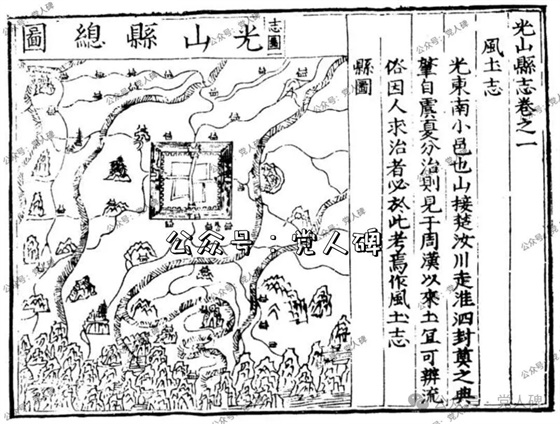 光山縣志卷之一
風土志
光東南小邑也山接楚汝川走淮泗封奠之典
肇自虞夏分治則見于周漢以來土宜可辨流
俗因人求治者必於此考焉作風土志
縣圖
志圖
光山縣總圖
公众号：党人碑
公众号·党人碑